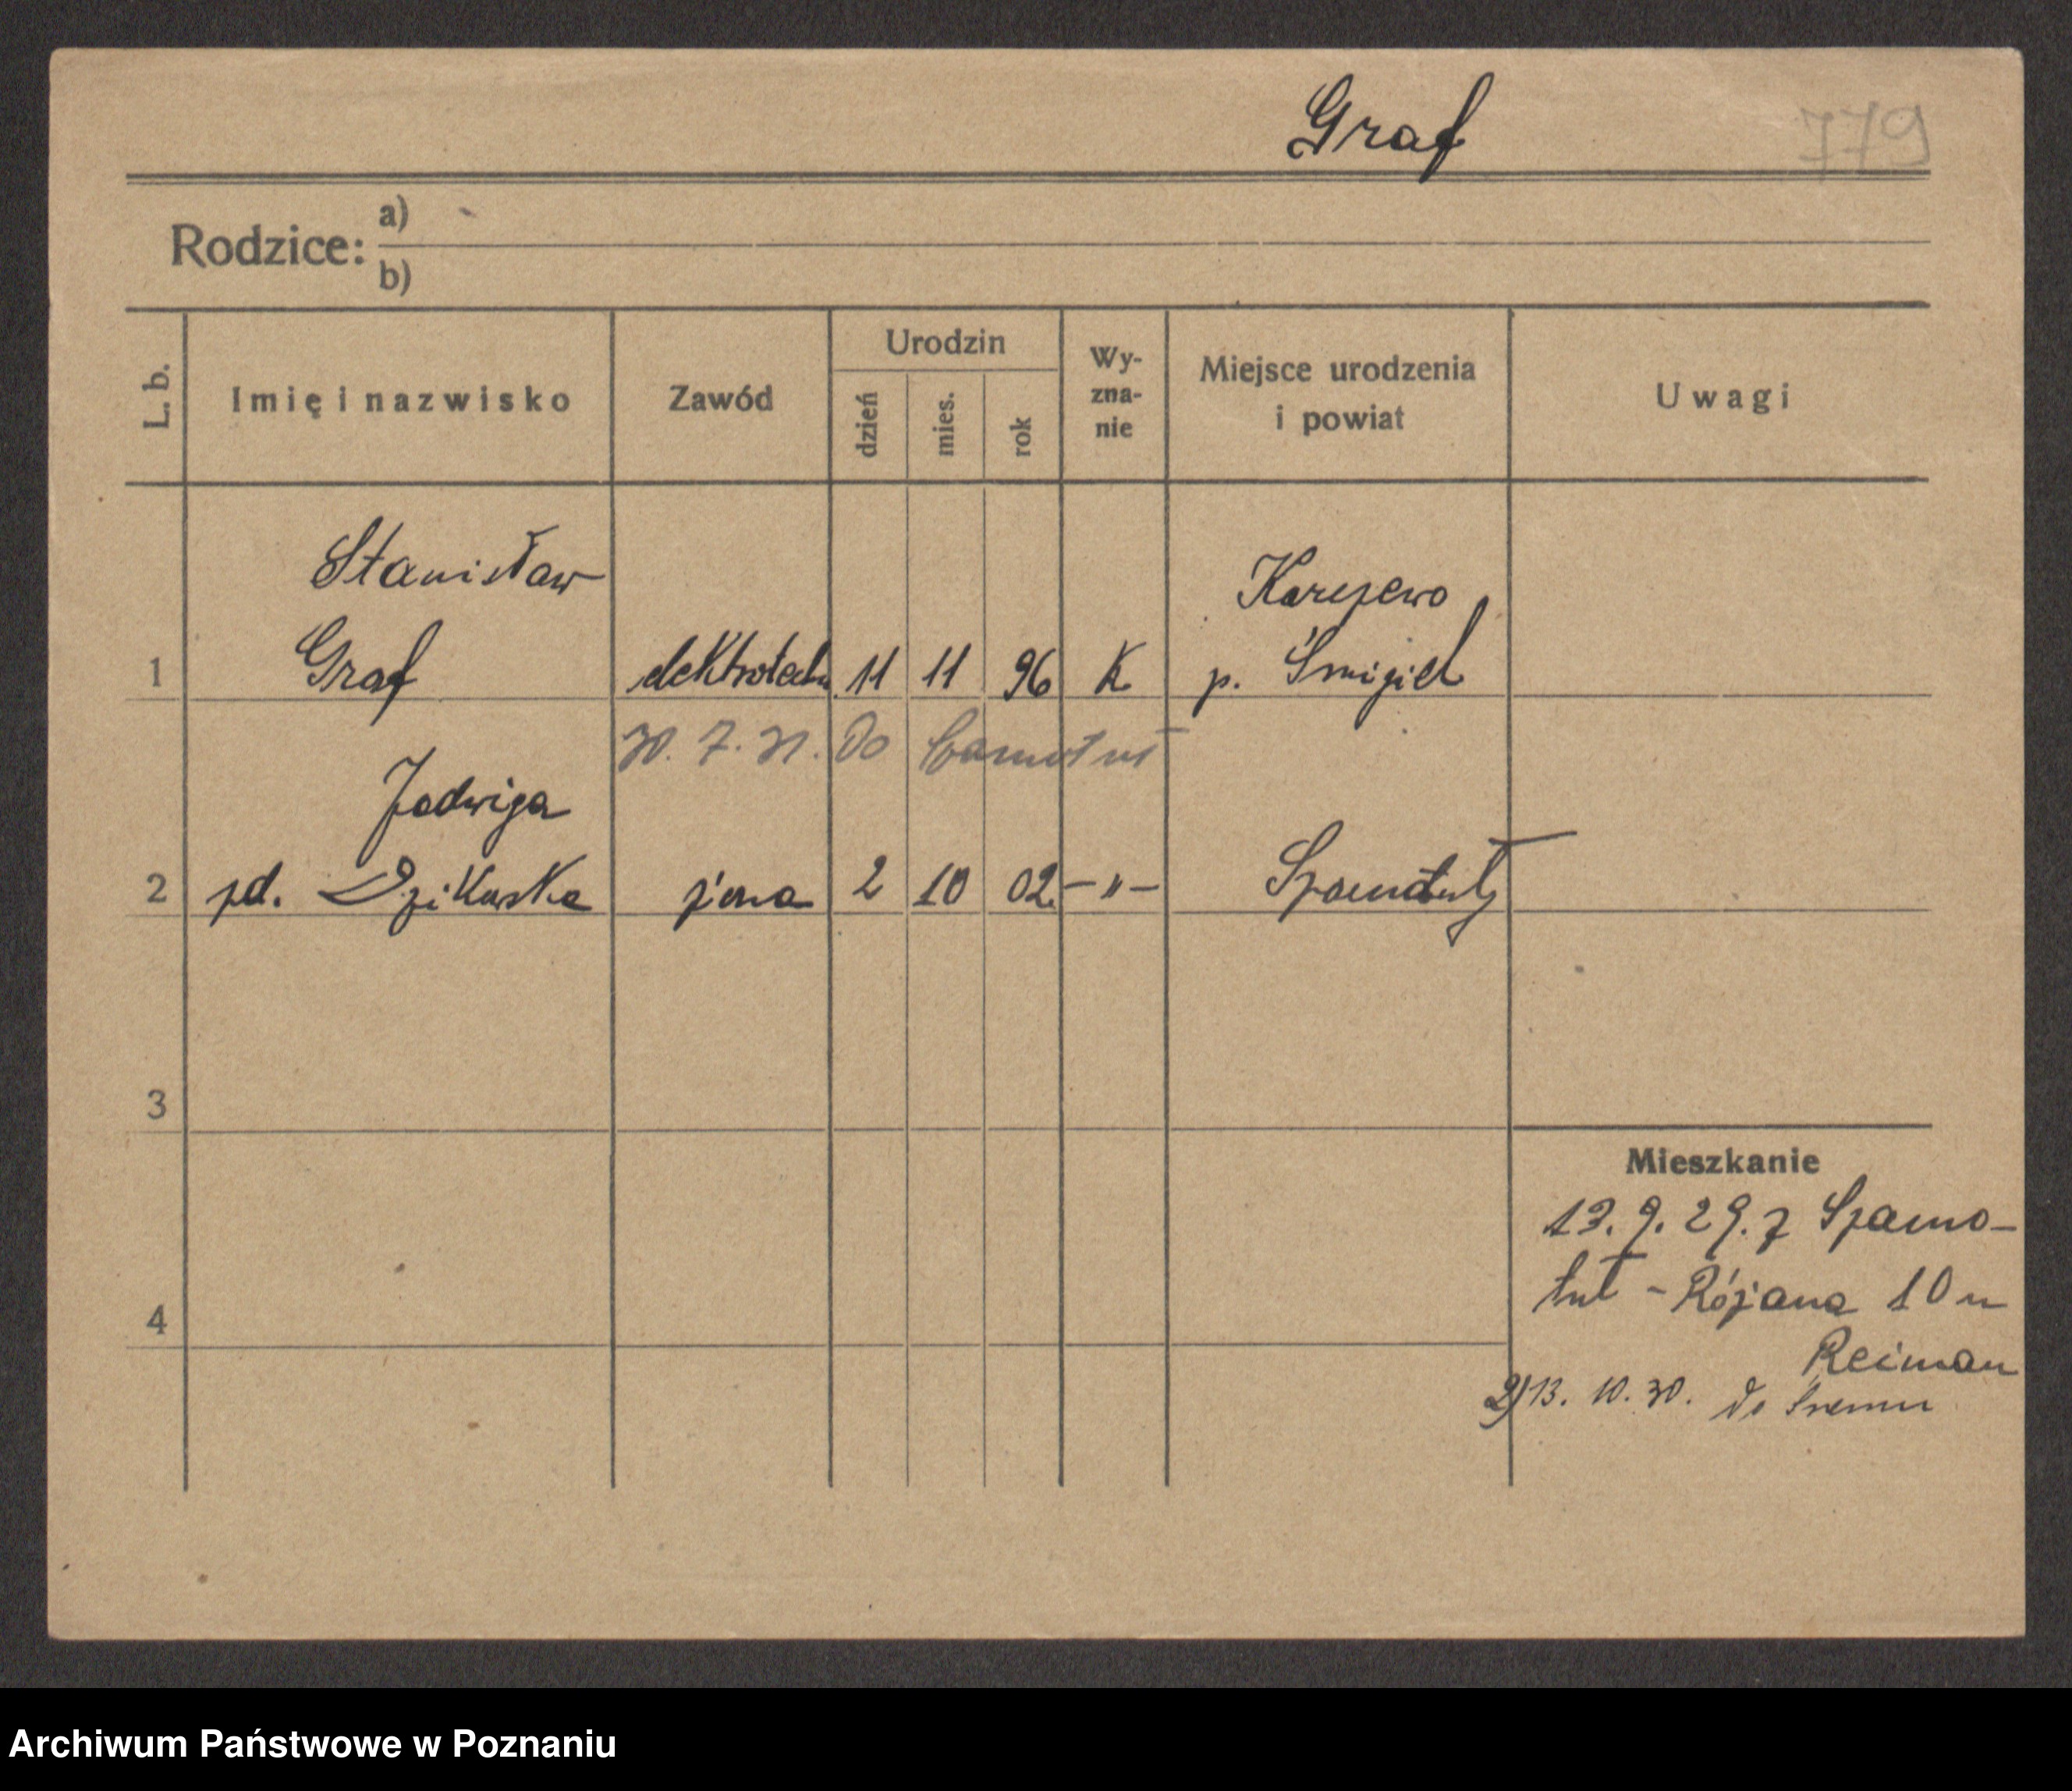 Graf
779
Rodzice:
a)
b)
L. b.
Imię i nazwisko
Zawód
Urodzin
dzień
mies.
rok
Wy-
zna-
nie
Miejsce urodzenia
i powiat
Uwagi
Stanisław
Graf
1
elektrotechn
11
11
96
K
p. Śmigiel
30. 7. 31. do
Jadwiga
2
zd. Dzikowska
żona
2
10
02
-"-
Szamotuły
3
4
Mieszkanie
13. 9. 29. z Szamo-
tuł - Różana 10 u
Reiman
2) 13. 10. 30. do Śremu
Archiwum Państwowe w Poznaniu